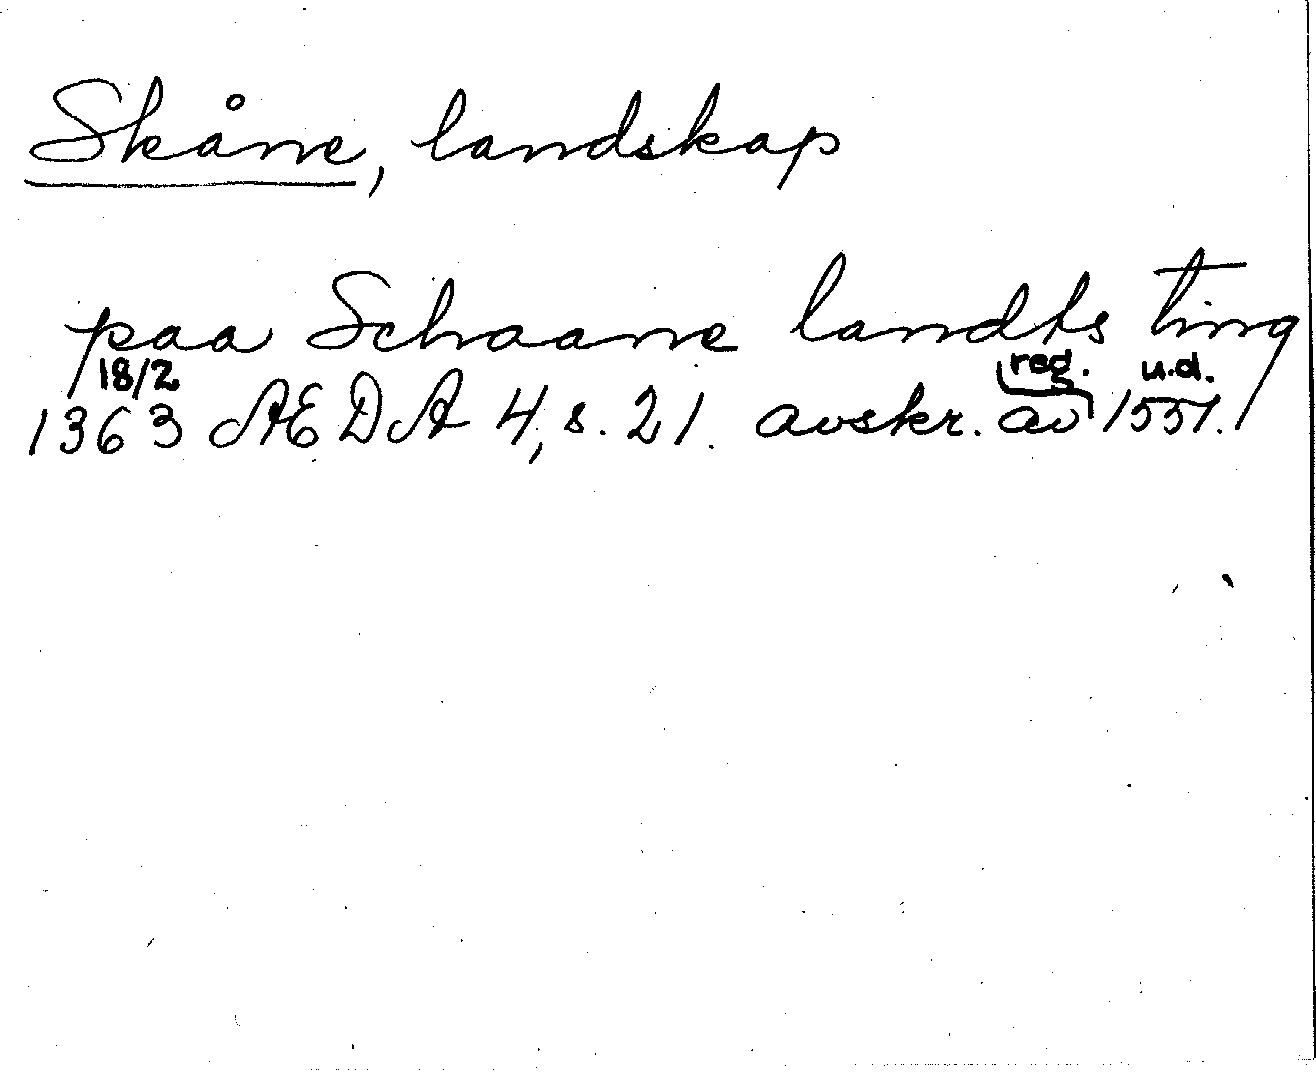 Skåne, landskap
paa Schaane landts ting
18/2 reg. u.d.
1363 ÆDA 4, s. 21. avskr. av 1551.